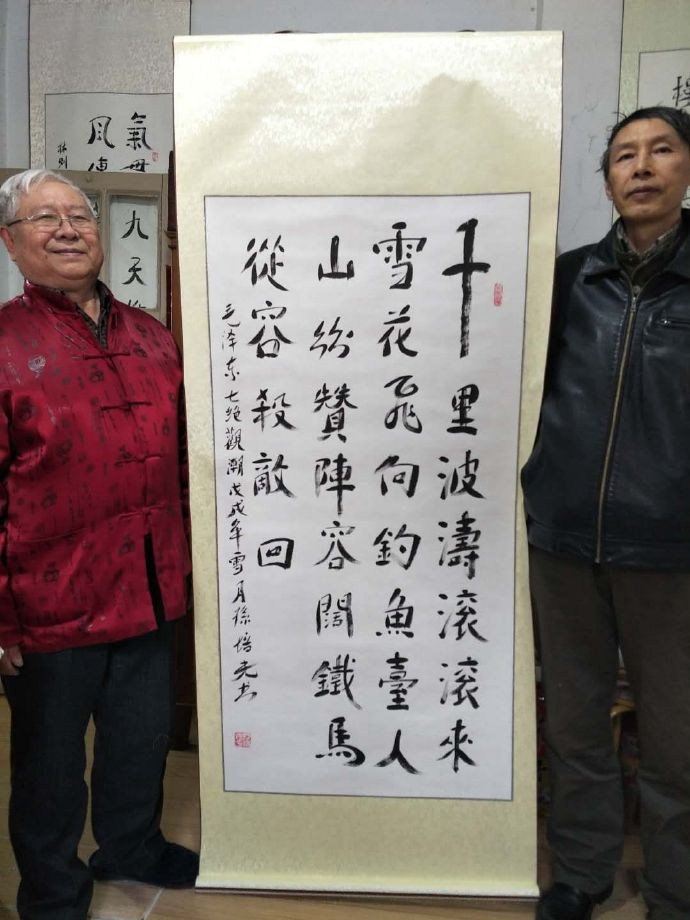 千里波濤滾滾來
雪花飛向釣魚臺人
山紛贊陣容闊鐵馬
從容殺敵回
毛泽东七绝觀潮戊戌年雪月孫培书
氣
風
林则
九天